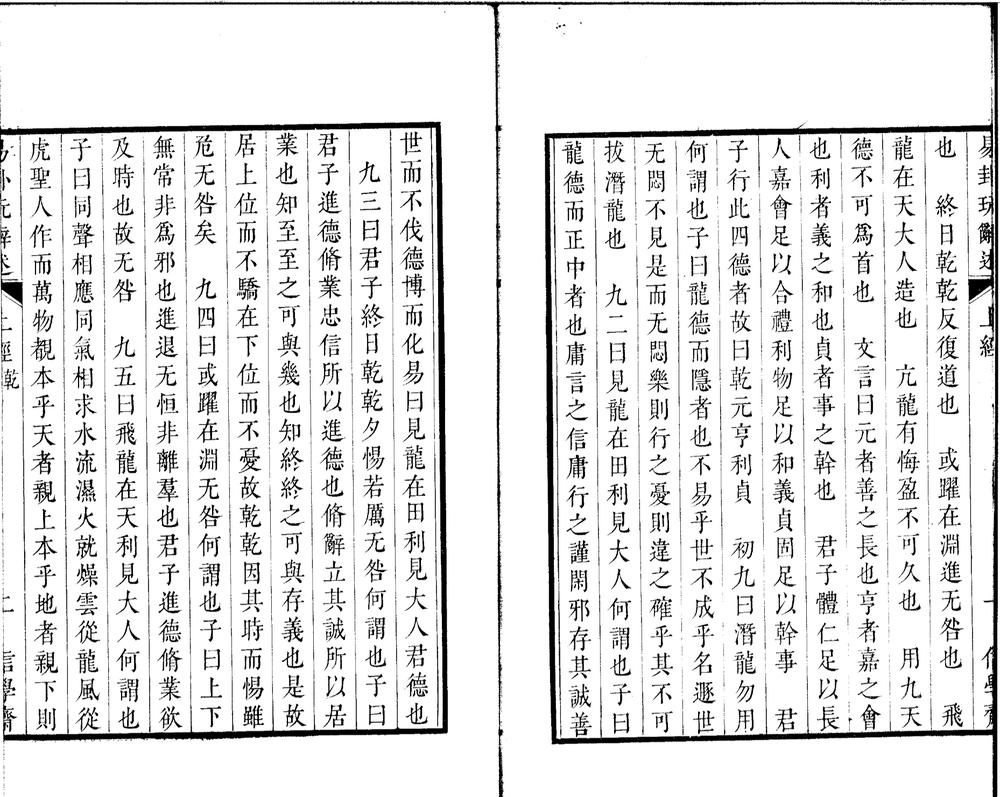 易卦玩辭述 上經 信學齋
也　終日乾乾反復道也　或躍在淵進无咎也　飛
龍在天大人造也　亢龍有悔盈不可久也　用九天
德不可爲首也　文言曰元者善之長也亨者嘉之會
也利者義之和也貞者事之幹也　君子體仁足以長
人嘉會足以合禮利物足以和義貞固足以幹事　君
子行此四德者故曰乾元亨利貞　初九曰潛龍勿用
何謂也子曰龍德而隱者也不易乎世不成乎名遯世
无悶不見是而无悶樂則行之憂則違之確乎其不可
拔潛龍也　九二曰見龍在田利見大人何謂也子曰
龍德而正中者也庸言之信庸行之謹閑邪存其誠善
世而不伐德博而化易曰見龍在田利見大人君德也
九三曰君子終日乾乾夕惕若厲无咎何謂也子曰
君子進德脩業忠信所以進德也脩辭立其誠所以居
業也知至至之可與幾也知終終之可與存義也是故
居上位而不驕在下位而不憂故乾乾因其時而惕雖
危无咎矣　九四曰或躍在淵无咎何謂也子曰上下
無常非爲邪也進退无恒非離羣也君子進德脩業欲
及時也故无咎　九五曰飛龍在天利見大人何謂也
子曰同聲相應同氣相求水流濕火就燥雲從龍風從
虎聖人作而萬物覩本乎天者親上本乎地者親下則
易卦玩辭述 上經 乾 二 信學齋